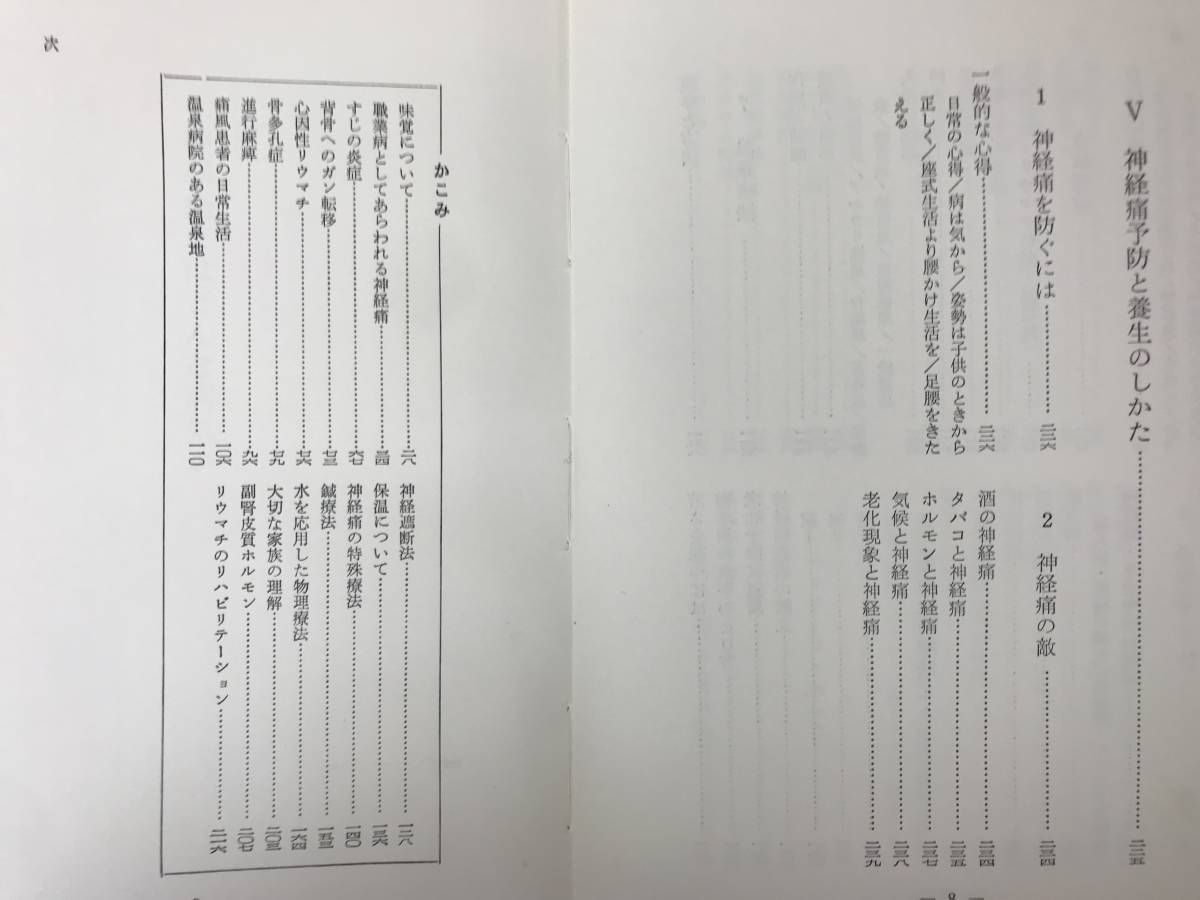 V 神経痛予防と養生のしかた……二二五
1 神経痛を防ぐには……二二六
一般的な心得……二二六
日常の心得／病は気から／姿勢は子供のときから
正しく／座式生活より腰かけ生活を／足腰をきた
える
2 神経痛の敵……二三四
酒の神経痛……二三四
タバコと神経痛……二三五
ホルモンと神経痛……二三七
気候と神経痛……二三八
老化現象と神経痛……二三九
8
次
かこみ
味覚について……二八
職業病としてあらわれる神経痛……三四
すじの炎症……六七
背骨へのガン転移……七三
心因性リウマチ……七六
骨多孔症……七九
進行麻痺……九六
痛風患者の日常生活……一〇六
温泉病院のある温泉地……一一〇
神経遮断法……一二八
保温について……一三六
神経痛の特殊療法……一四〇
鍼療法……一五三
水を応用した物理療法……一六四
大切な家族の理解……二〇三
副腎皮質ホルモン……二〇七
リウマチのリハビリテーション……二一六